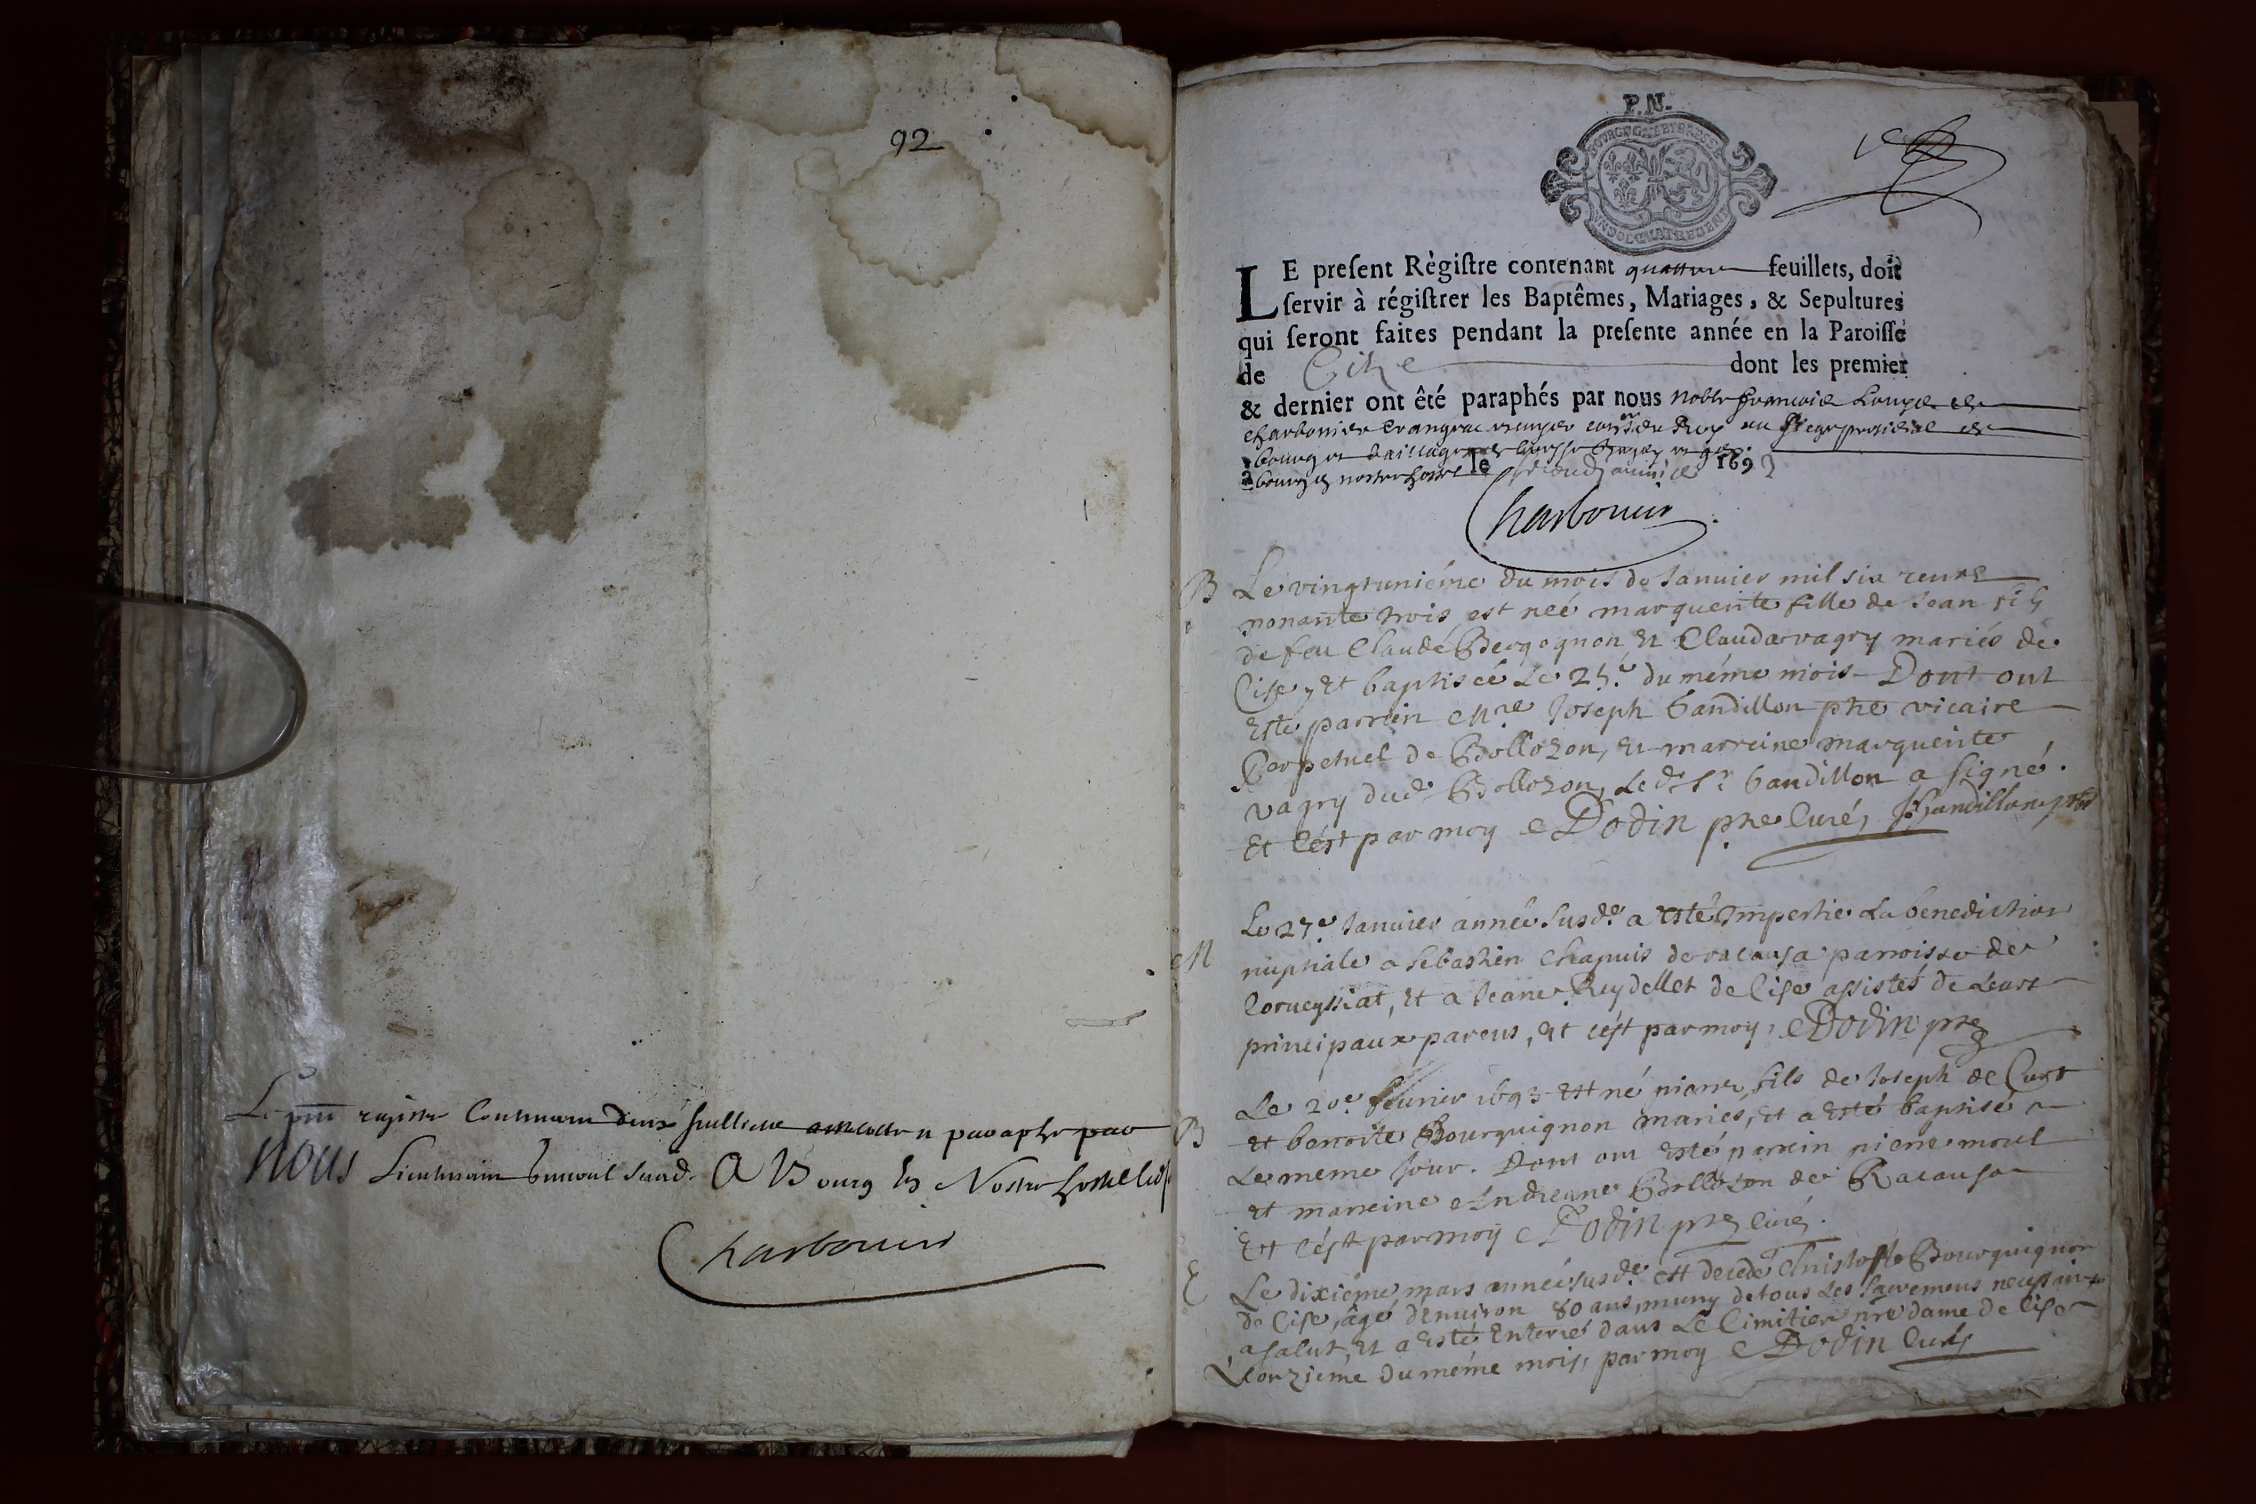 92
Le pnt registre Contenant deux feuillets a este cotte et paraphe par
nous Lieutenant A Bourg En Nostre hostel
Charbonier
P.N.
BOURGOGNE ET BRESSE
LE present Règistre contenant quattre feuillets, doit
servir à régistrer les Baptêmes, Mariages, & Sepultures
qui seront faites pendant la presente année en la Paroisse
de Cize dont les premier
& dernier ont êté paraphés par nous Noble francois Louys de
charbonier crangeac conser du Roy au siege presidial de
bourg et bailliage de bresse
à bourg en nostre hostel le 1693
Charbonier
B Le vingtuniéme du mois de Januier mil six cents
nonante trois est neé marguerite fille de Jean fils
de feu Claude Bergognon Et Claudavagry mariés de
Cise, Et baptiseé Le 25.e du méme mois - Dont ont
Este parrein Mre Joseph Gandillon ptre vicaire
Perpetuel de Bollozon, Et marreine marguerite
vagry dud. Bollozon, Le d. Sr Gandillon a signé.
Et C'ést par moy Dodin ptre Curé, JGandillon ptre
M Le 27.e Januier année susd.e a esté Impertie La benediction
nuptiale a Sebastien Chapuis de racousa parroisse de
Corueyssiat, Et a Jeane Reydellet de Cise assistés de Leurs
principaux parens, Et cést par moy, Dodin ptre
B Le 20.e feurier 1693 Est né pierre fils de Joseph de Curt
et benoite Bourguignon mariés, Et a Esté baptisé
Le meme Jour. Dont ont Esté parrein pierre moul
Et marreine Andreane Bollozon de Racousa
Et cést par moy Dodin ptre Curé.
E Le dixiéme mars année susd.e est decedé Christofle Bourguignon
de Cise, âgé denuiron 80 ans, muny de tous Les sacremens necessaires
a salut, Et a Esté Enterré dans Le Cimitiere nre dame de Cise
L'onziéme du méme mois, par moy Dodin Curé